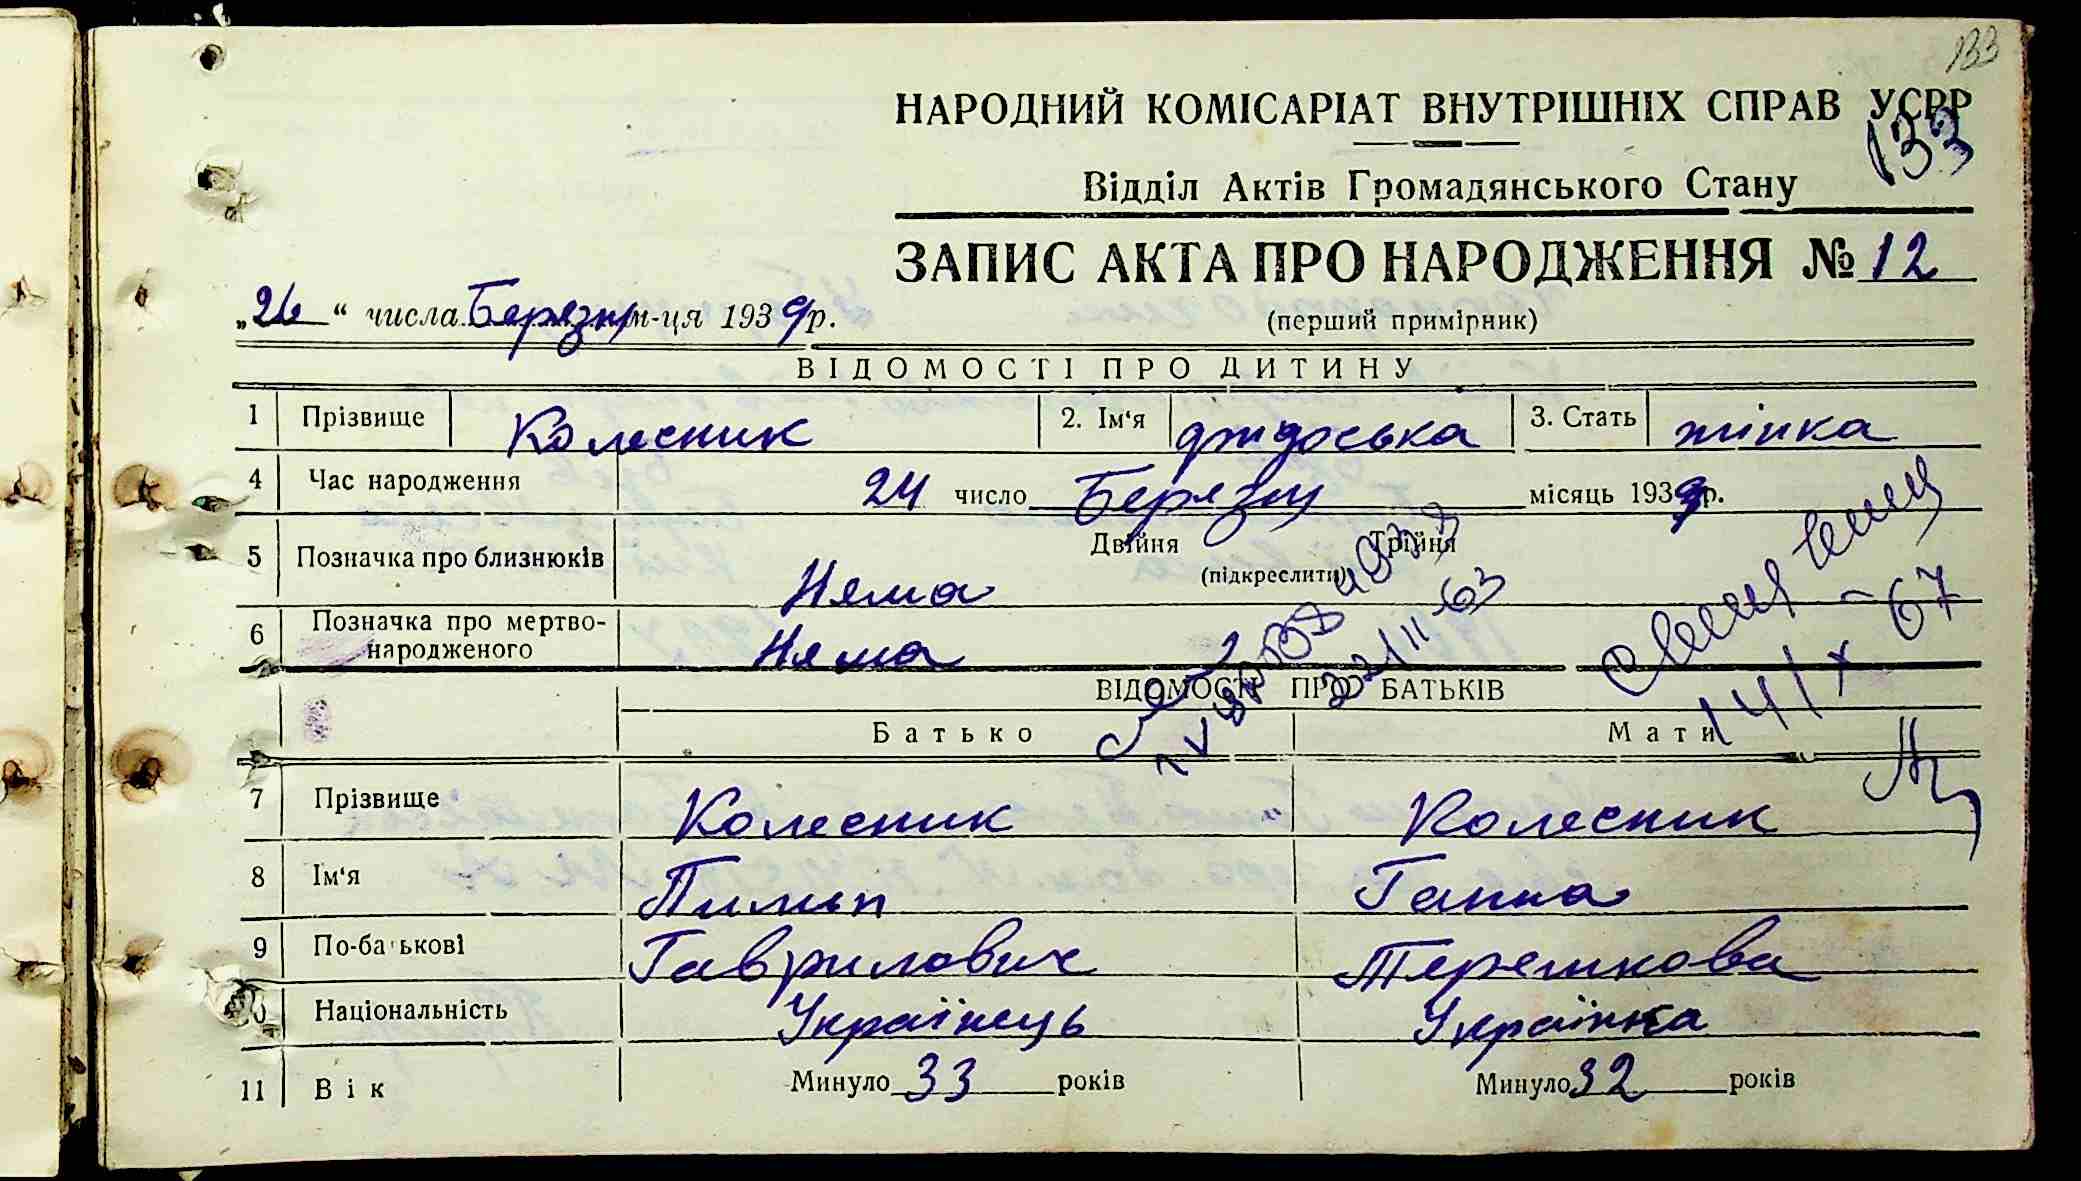 133
НАРОДНИЙ КОМІСАРІАТ ВНУТРІШНІХ СПРАВ УСРР
133
Відділ Актів Громадянського Стану
ЗАПИС АКТА ПРО НАРОДЖЕННЯ № 12
„26“ числа Березня м-ця 1939 р.
(перший примірник)
ВІДОМОСТІ ПРО ДИТИНУ
1 Прізвище Колесник 2. Ім‘я 3. Стать жінка
4 Час народження 24 число Березня місяць 1939 р.
5 Позначка про близнюків Няма Двійня Трійня
(підкреслити)
6 Позначка про мертво-
народженого Няма
ВІДОМОСТІ ПРО БАТЬКІВ
Батько Мати
7 Прізвище Колесник Колесник
8 Ім‘я Пилип Ганна
9 По-батькові Гаврилович Терешкова
Національність Українець Українка
11 Вік Минуло 33 років Минуло 32 років
14/X - 67